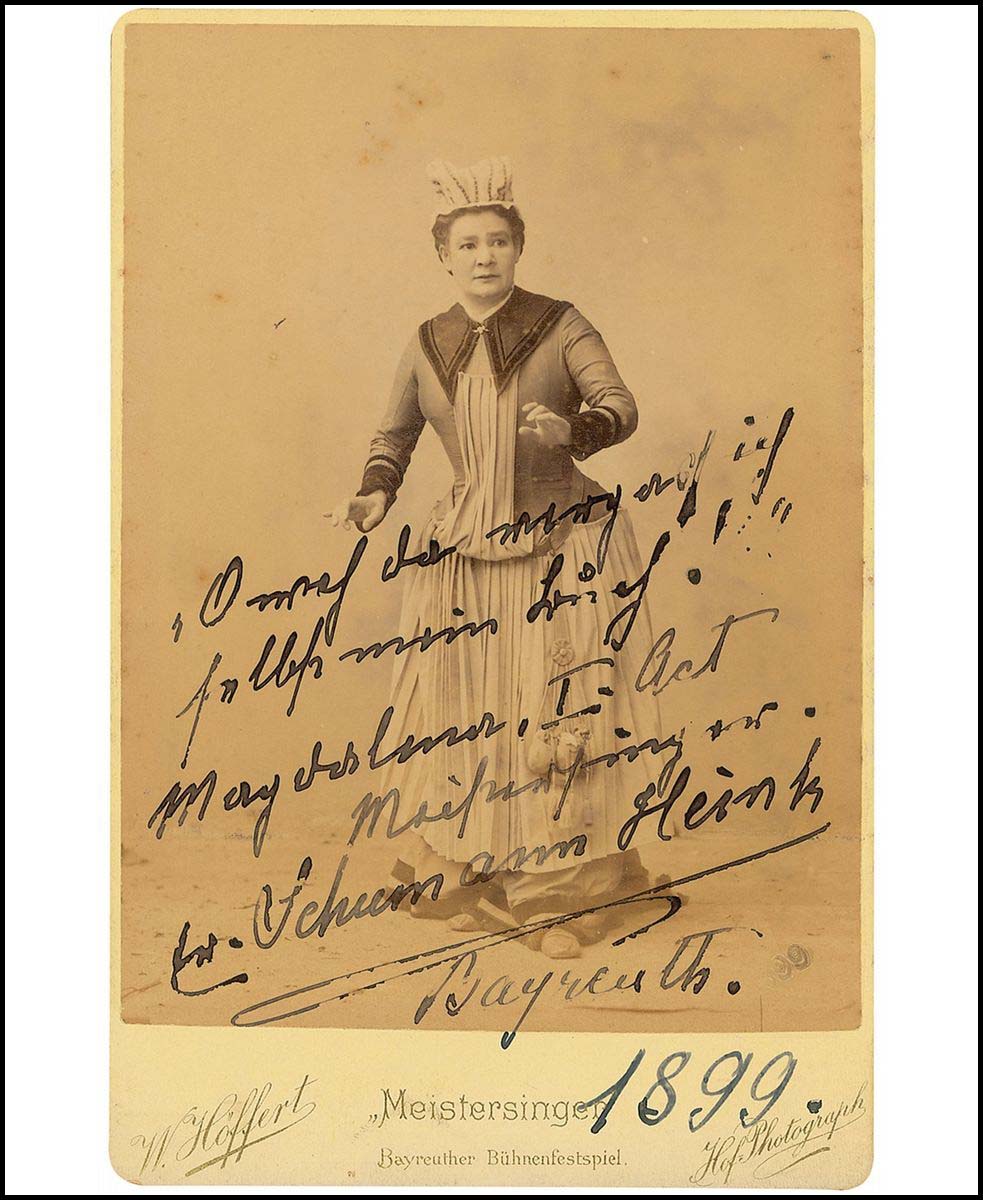 „O weh da vergaß ich
selbst mein Buch!"
Magdalena, I. Act
Meistersinger.
Er. Schumann Heink
Bayreuth.
1899.
W. Höffert
„Meistersinger
Hof-Photograph
Bayreuther Bühnenfestspiel.